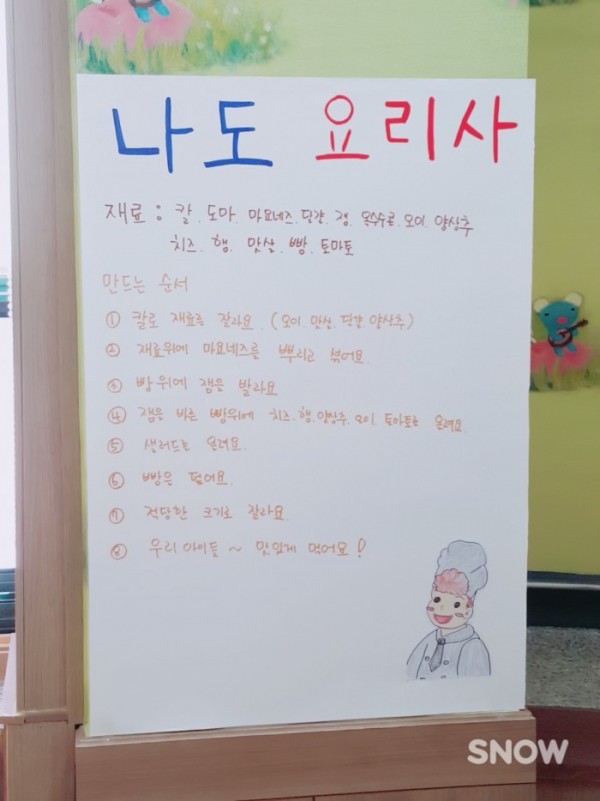 나도 요리사
재료 : 칼. 도마. 마요네즈. 당근. 잼. 옥수수콘. 오이. 양상추
치즈. 햄. 맛살. 빵. 토마토
만드는 순서
① 칼로 재료를 잘라요. (오이. 맛살. 당근. 양상추)
② 재료위에 마요네즈를 뿌리고 섞어요.
③ 빵위에 잼을 발라요
④ 잼을 바른 빵위에 치즈. 햄. 양상추. 오이. 토마토를 올려요.
⑤ 샐러드를 올려요.
⑥ 빵을 덮어요.
⑦ 적당한 크기로 잘라요.
⑧ 우리 아이들 ~ 맛있게 먹어요!
SNOW